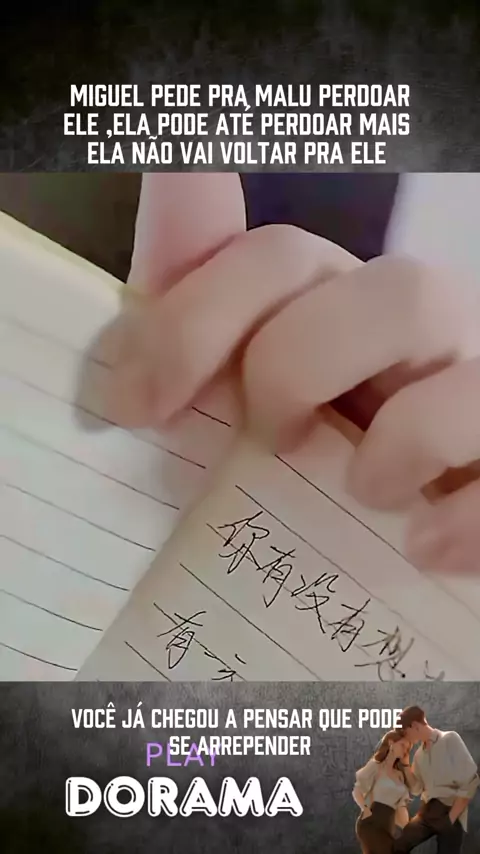 MIGUEL PEDE PRA MALU PERDOAR
ELE ,ELA PODE ATÉ PERDOAR MAIS
ELA NÃO VAI VOLTAR PRA ELE
你有没有想
有一
VOCÊ JÁ CHEGOU A PENSAR QUE PODE
SE ARREPENDER
PLAY
DORAMA